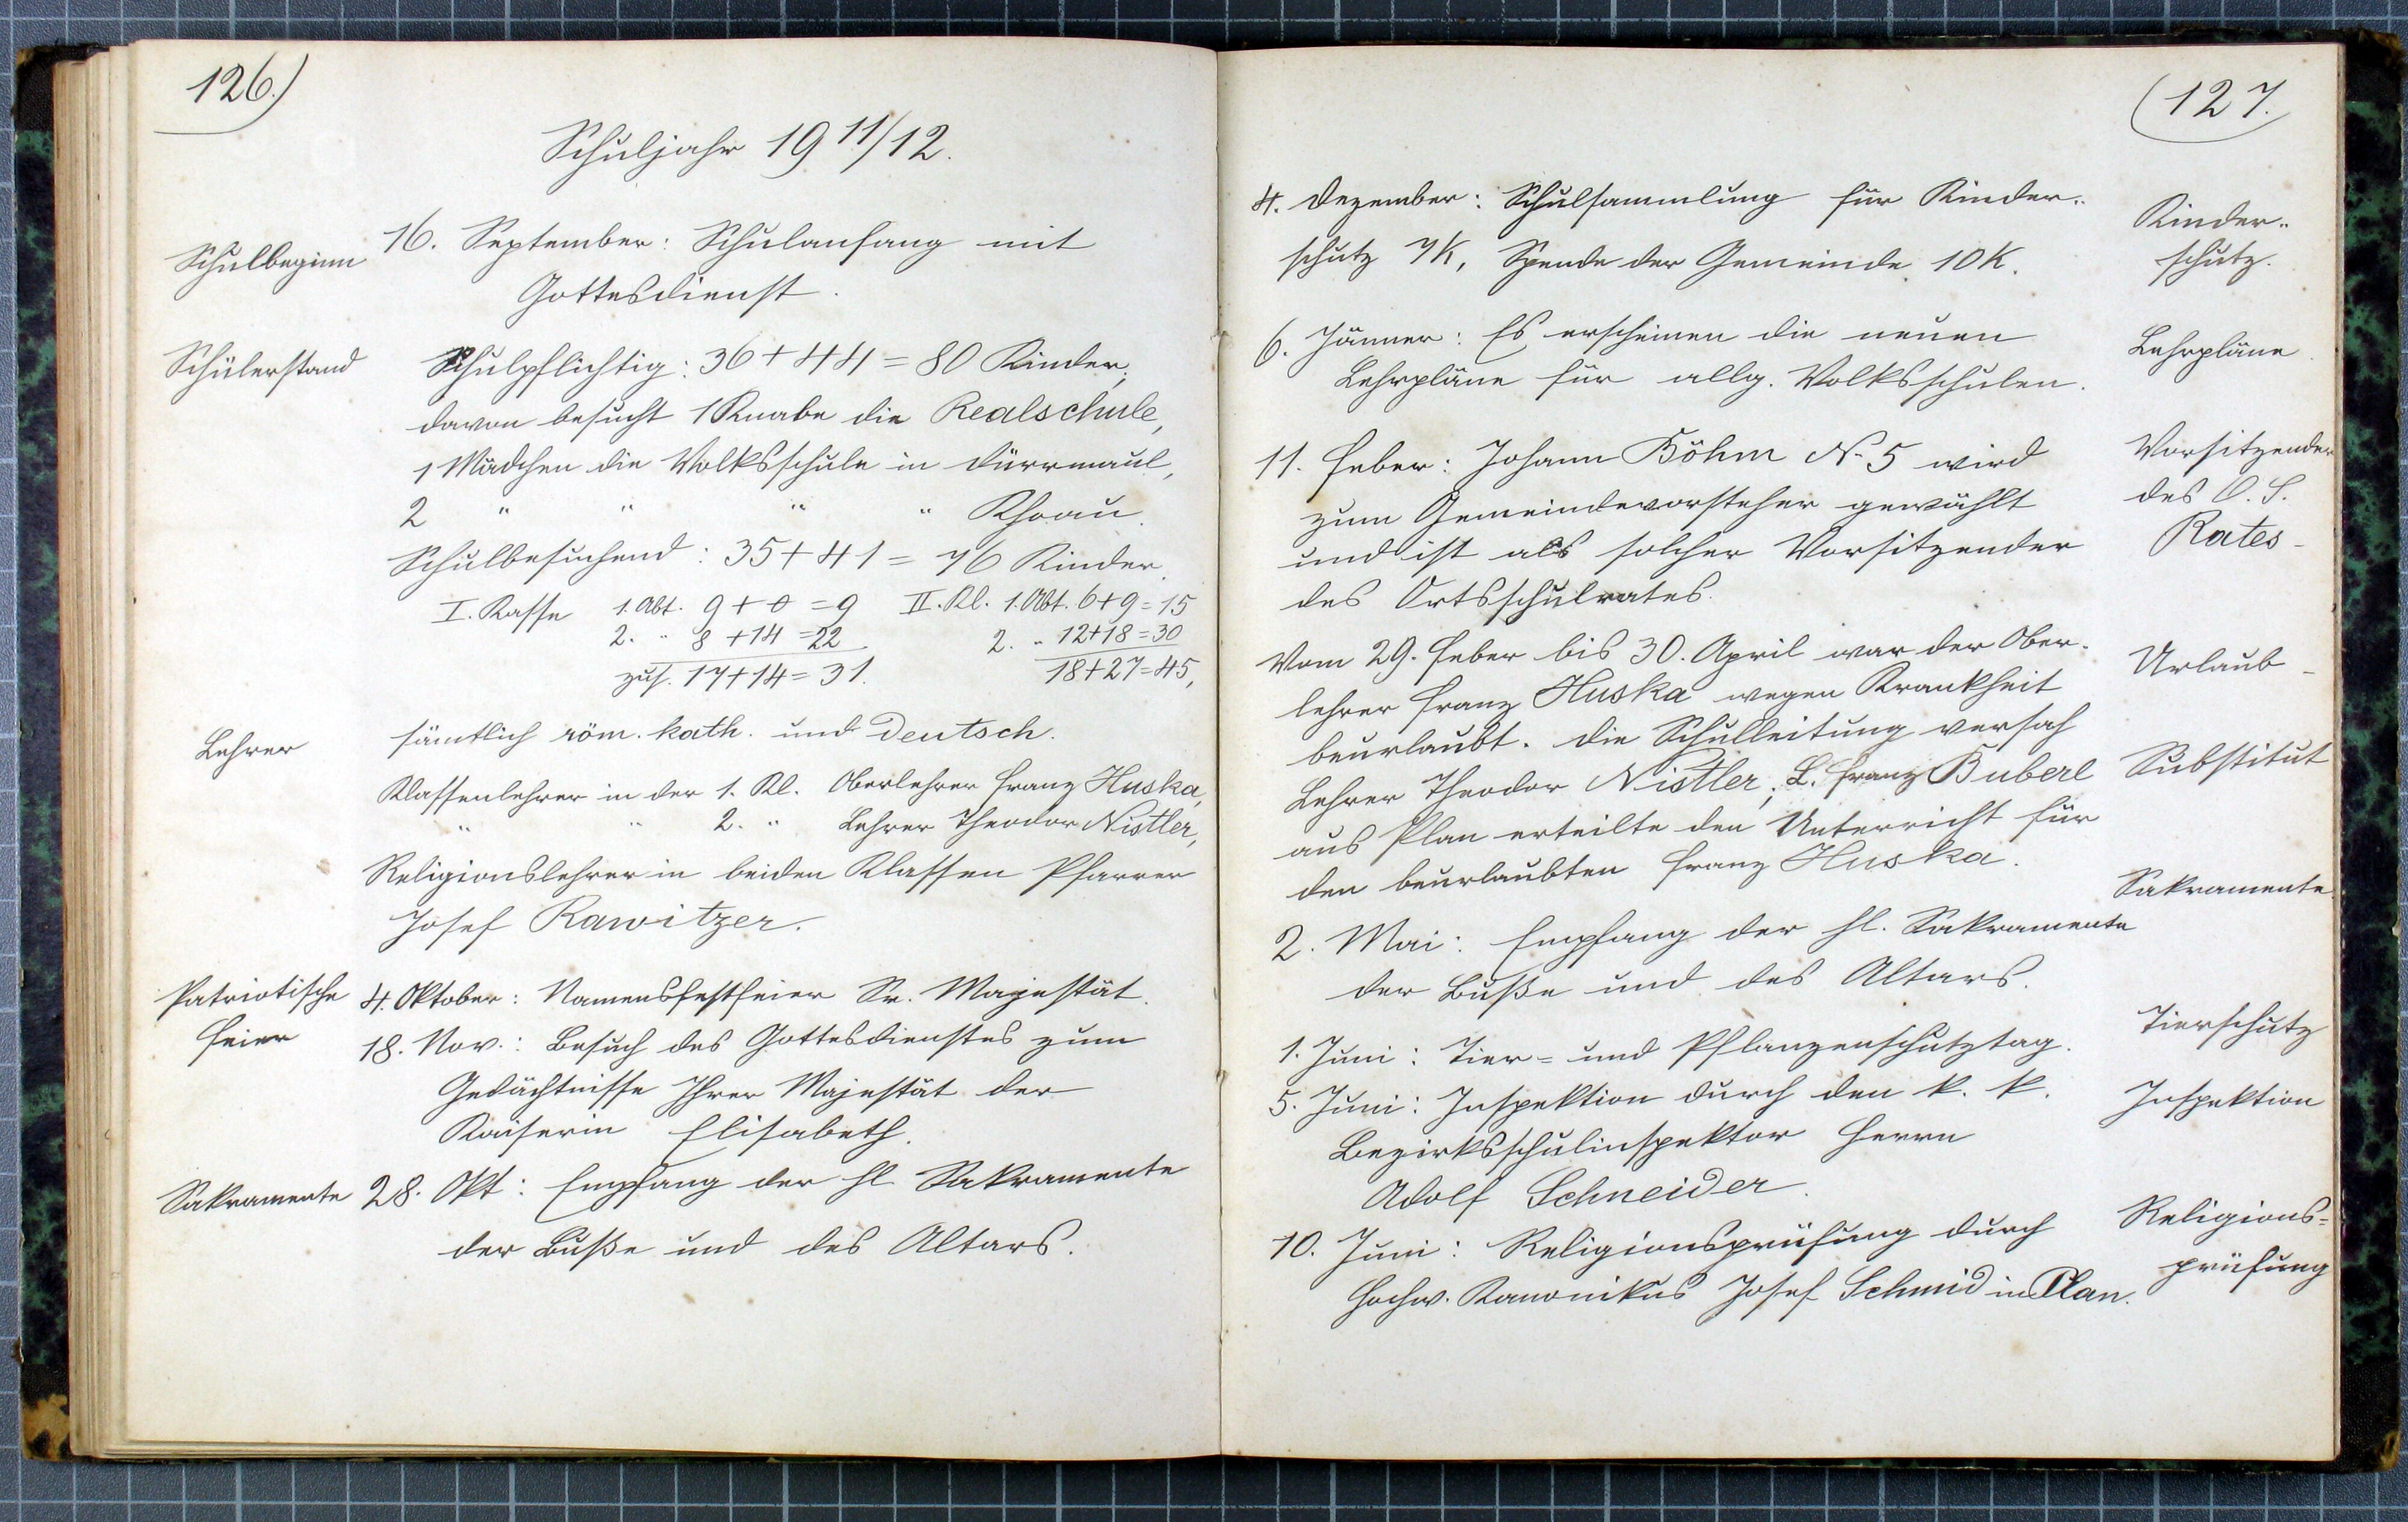 126.)
Schuljahr 19 11/12.
Schulbeginn
16. September: Schulanfang mit
Gottesdienst.
Schülerstand
Schulpflichtig: 36 + 44 = 80 Kinder;
davon besucht 1 Knabe die Realschule,
1 Mädchen die Volksschule in Dürrmaul,
2 " " " " Khoau.
Schulbesuchend: 35 + 41 = 76 Kinder.
I. Kasse 1. Abt. 9 + 0 = 9 II. Kl. 1. Abt. 6 + 9 = 15
2. " 8 + 14 = 22 2. " 12 + 18 = 30
zus. 17 + 14 = 31. 18 + 27 = 45,
sämtlich röm. kath. und Deutsch.
Lehrer
Klassenlehrer in der 1. Kl. Oberlehrer Franz Huska,
" " 2. " Lehrer Theodor Nistler,
Religionslehrer in beiden Klassen Pfarrer
Josef Rawitzer.
Patriotische
Feier
4. Oktober: Namensfestfeier Sr. Majestät.
18. Nov.: Besuch des Gottesdienstes zum
Gedächtnisse Ihrer Majestät der
Kaiserin Elisabeth.
Sakramente
28. Okt: Empfang der hl. Sakramente
der Buße und des Altars.
(127.
4. Dezember: Schulsammlung für Kinder-
schutz 7 K, Spende der Gemeinde 10 K.
Kinder-
schutz.
6. Jänner: Es erscheinen die neuen
Lehrpläne für allg. Volksschulen.
Lehrpläne.
11. Feber: Johann Böhm N. 5 wird
zum Gemeindevorsteher gewählt
und ist als solcher Vorsitzender
des Ortsschulrates.
Vorsitzender
des O. S.
Rates
Vom 29. Feber bis 30. April war der Ober-
lehrer Franz Huska wegen Krankheit
beurlaubt. Die Schulleitung versah
Lehrer Theodor Nistler; L. Franz Buberl
aus Plan erteilte den Unterricht für
den beurlaubten Franz Huska.
Urlaub
Substitut
2. Mai: Empfang der hl. Sakramente
der Buße und des Altars.
Sakramente
1. Juni: Tier- und Pflanzenschutztag.
Tierschutz
5. Juni: Inspektion durch den k. k.
Bezirksschulinspektor Herrn
Adolf Schneider.
Inspektion
10. Juni: Religionsprüfung durch
Hochw. Kanonikus Josef Schmid in Plan.
Religions-
prüfung